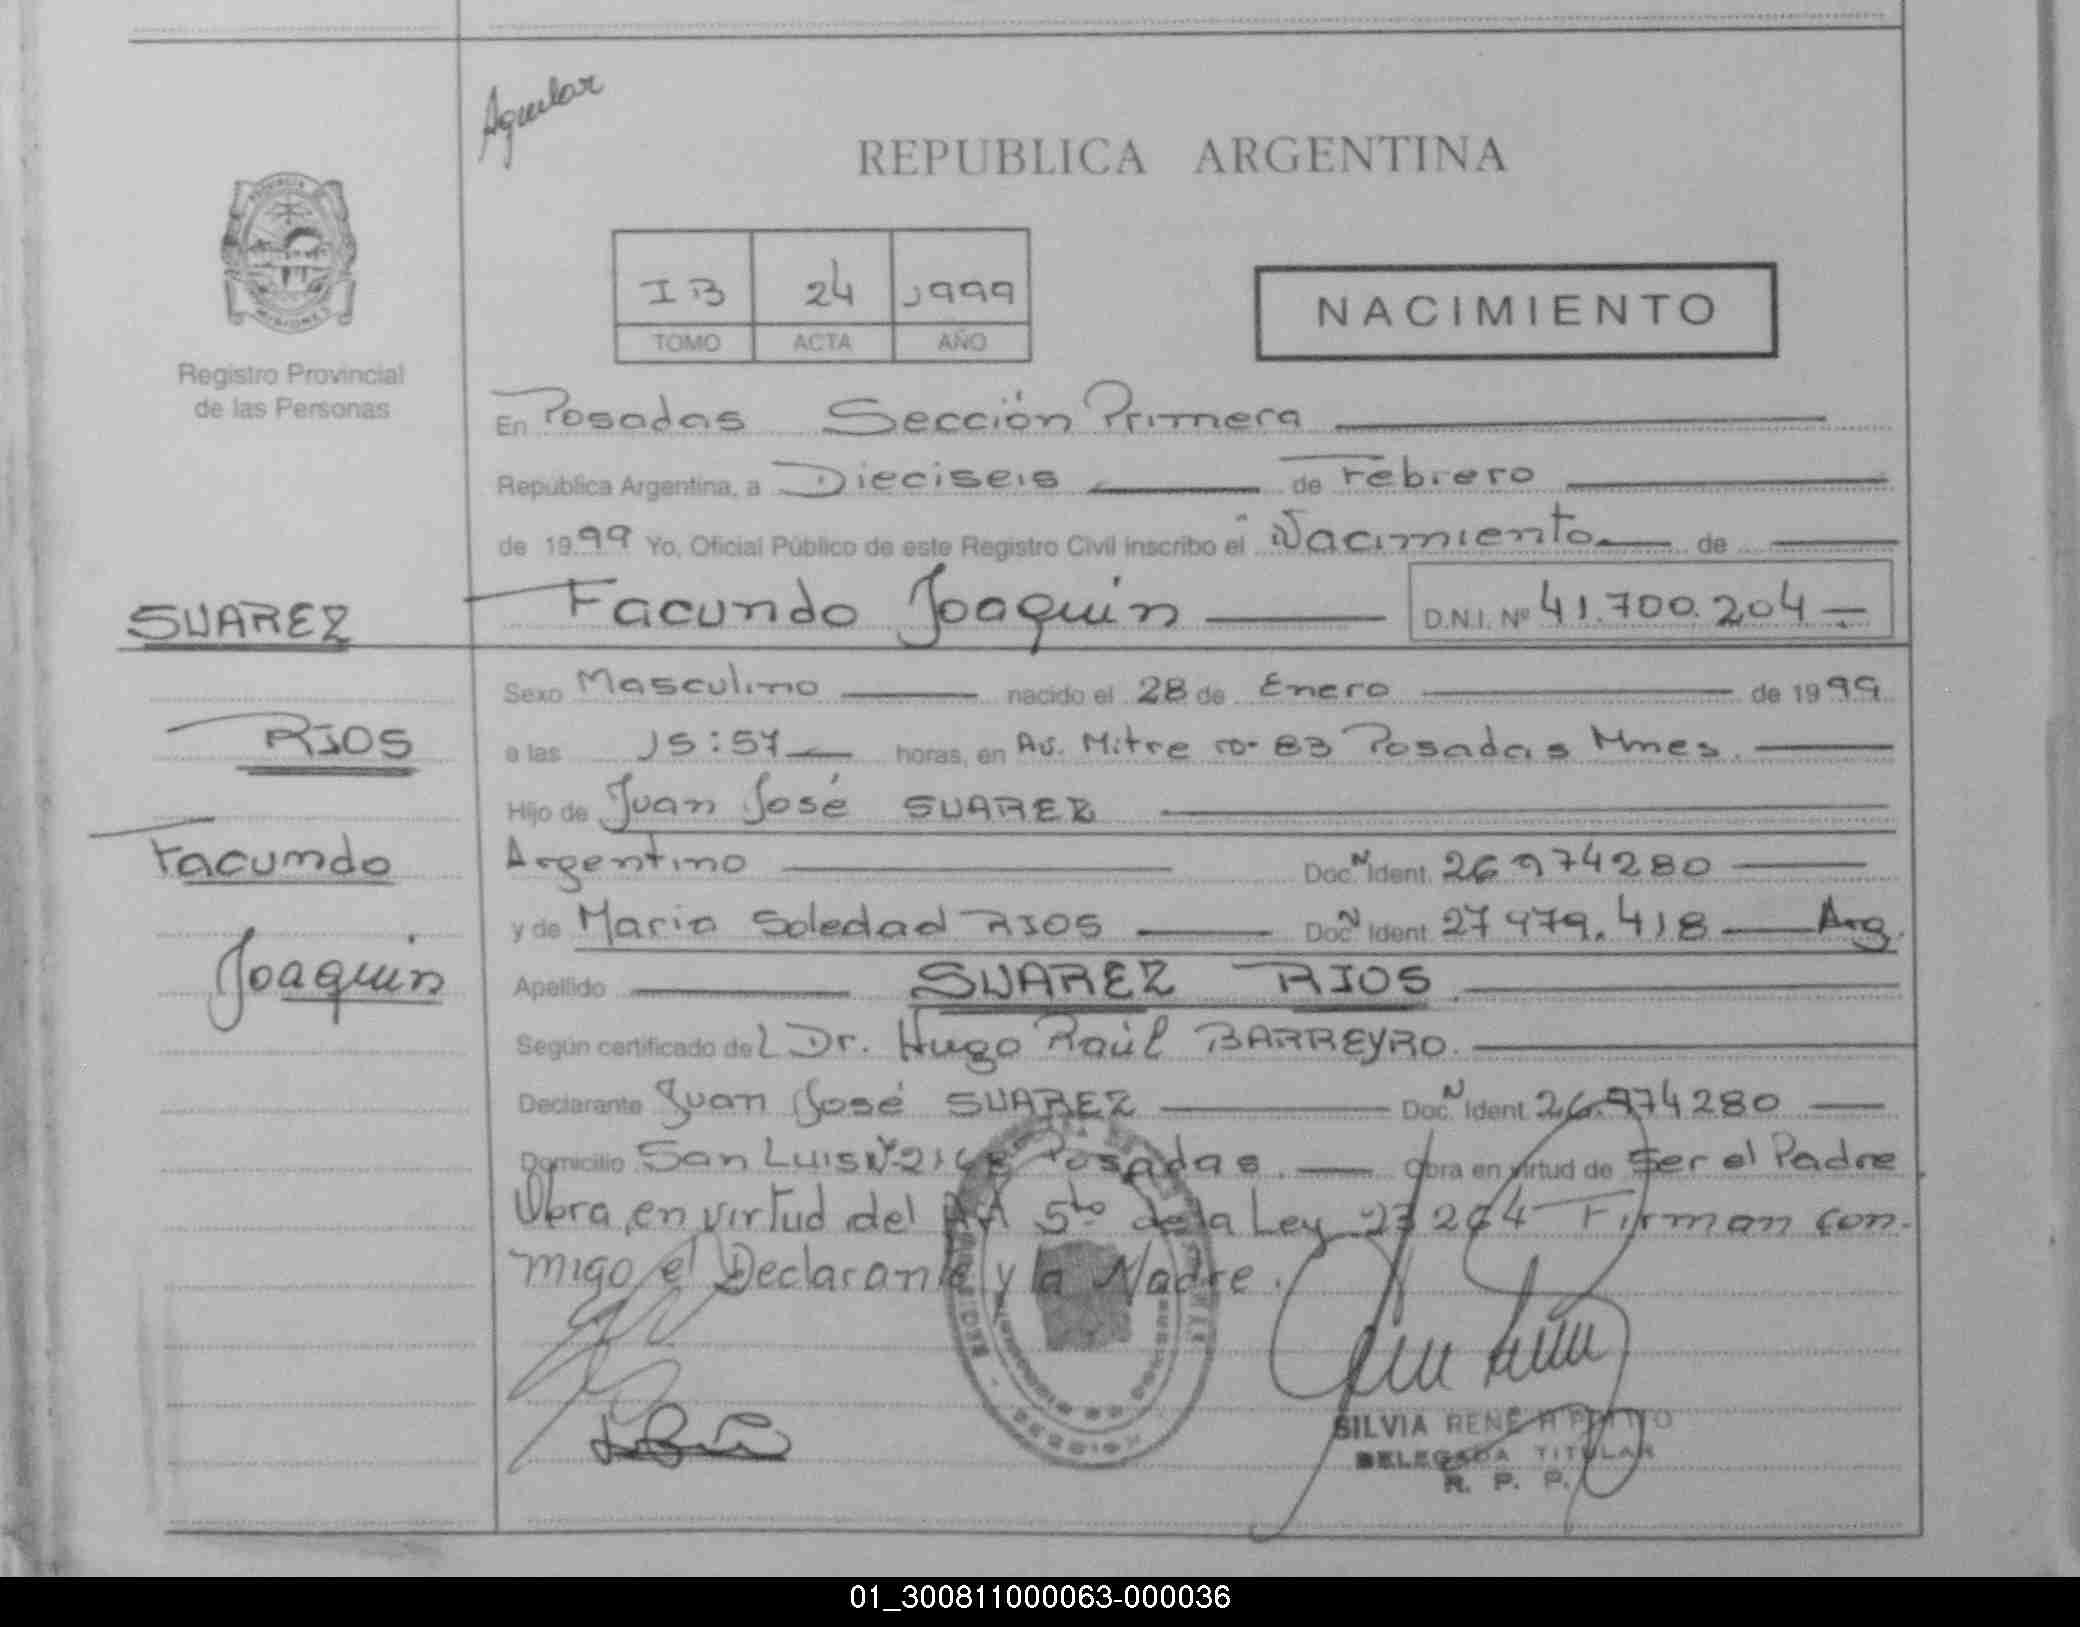 Aguilar
REPUBLICA ARGENTINA
PROVINCIA
MISIONES
Registro Provincial
de las Personas
I B 24 1999
TOMO ACTA AÑO
NACIMIENTO
En Posadas Sección Primera
República Argentina, a Dieciseis de Febrero
de 1999 Yo, Oficial Público de este Registro Civil inscribo el Nacimiento de
SUAREZ
Facundo Joaquin D.N.I. Nº 41.700.204
Sexo Masculino nacido el 28 de Enero de 1999
RIOS
a las 15:57 horas, en Av. Mitre no- 83 Posadas Mnes.
Hijo de Juan José SUAREZ
Facundo
Argentino Doc. N Ident. 26974280
y de Maria Soledad RIOS Doc. N Ident. 27979.418 Arg.
Joaquin
Apellido SUAREZ RIOS
Según certificado del Dr. Hugo Raúl BARREYRO.
Declarante Juan José SUAREZ Doc. N Ident. 26.974280
Domicilio San Luis Posadas. Obra en virtud de Ser el Padre
Obra en virtud del Art 5to de la Ley 23264 Firman con-
migo el Declarante y la Madre.
SILVIA RENÉ
DELEGADA TITULAR
R. P. P.
01_300811000063-000036